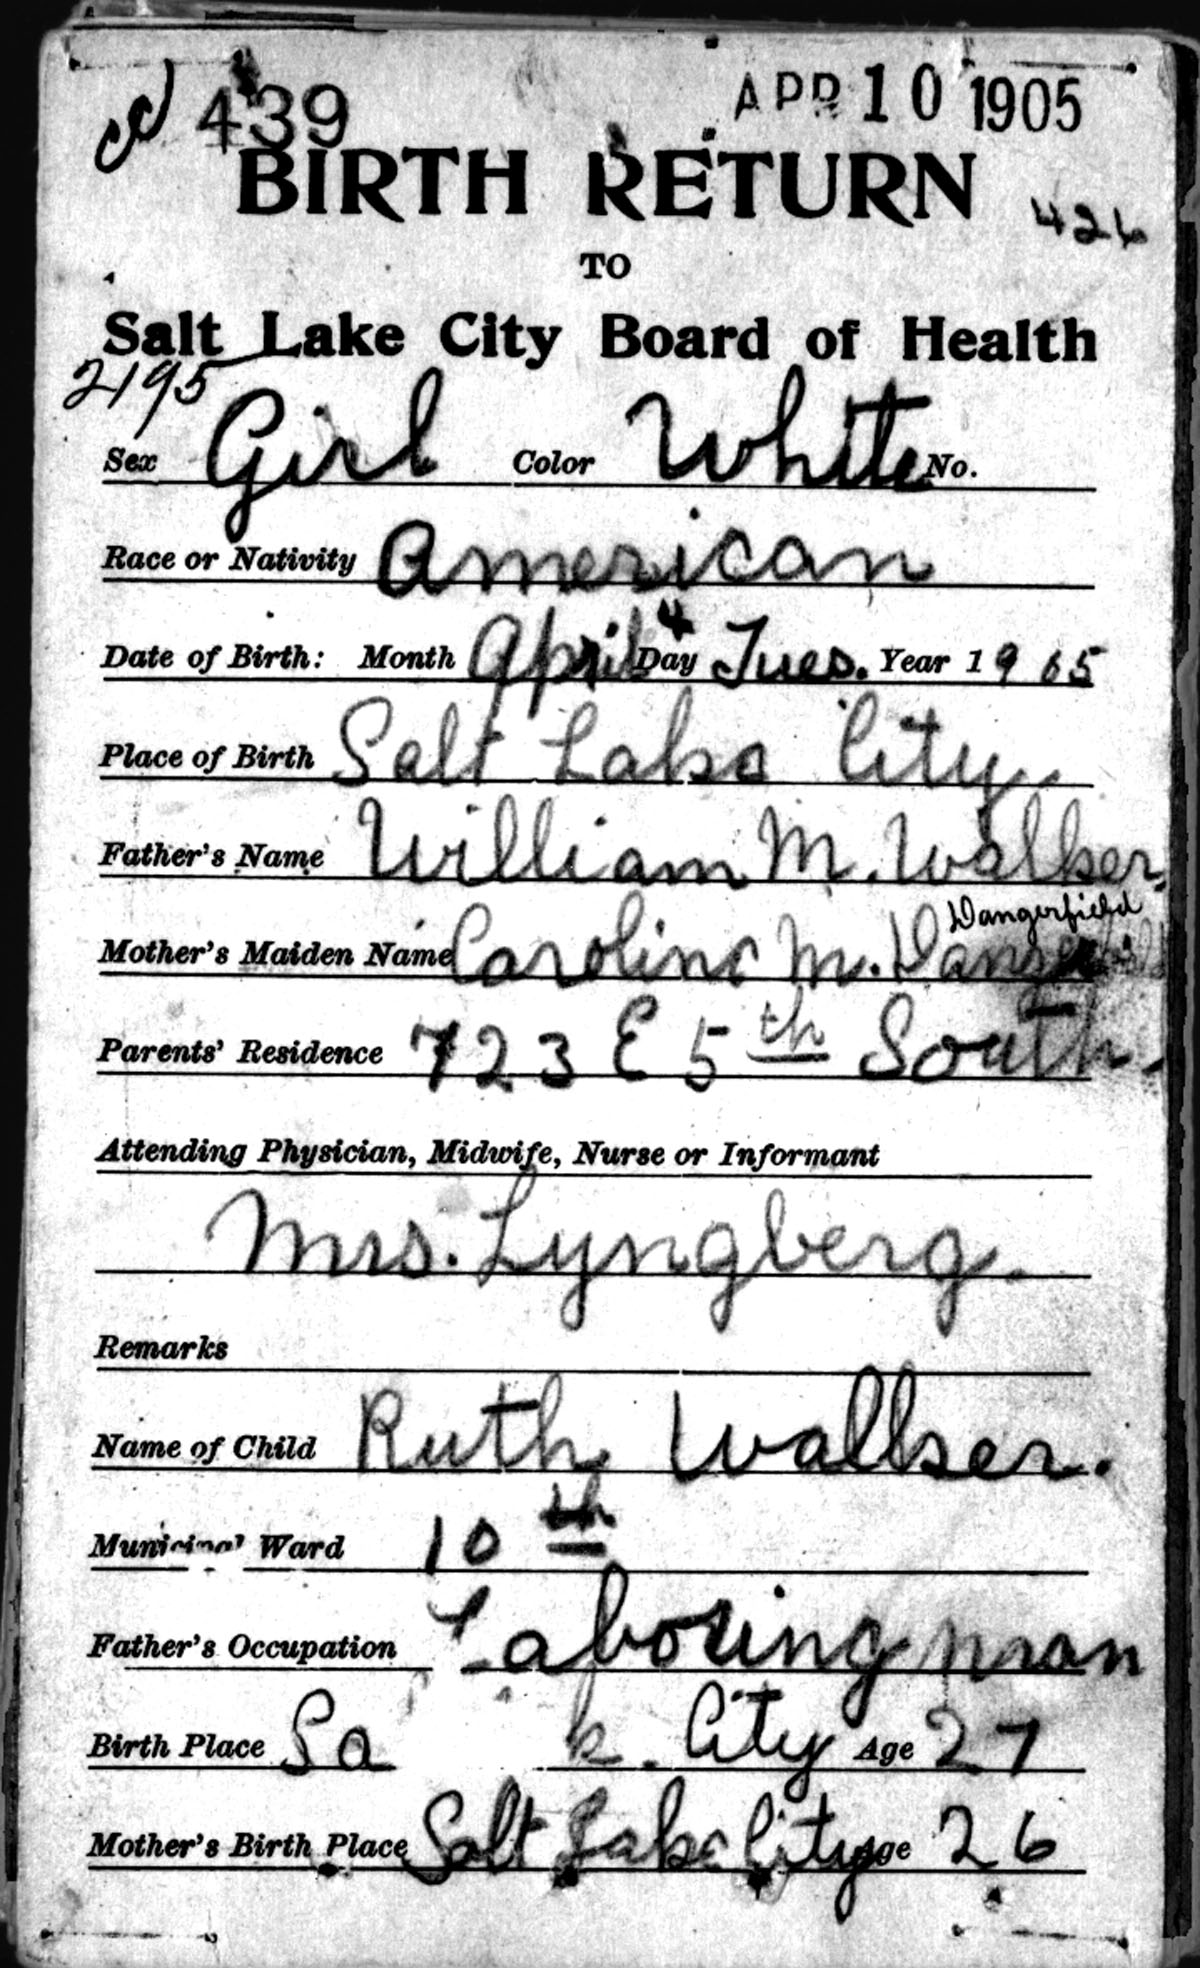 439 APR 10 1905
BIRTH RETURN
426
TO
Salt Lake City Board of Health
2195
Sex Girl Color White No.
Race or Nativity American
Date of Birth: Month April 4 Day Tues. Year 1905
Place of Birth Salt Lake City
Father's Name William M. Walker.
Dangerfield
Mother's Maiden Name Caroline M.
Parents' Residence 723 E 5th South.
Attending Physician, Midwife, Nurse or Informant
Mrs. Lyngberg.
Remarks
Name of Child Ruth Walker.
Municipal Ward 10th
Father's Occupation Laboring man
Birth Place Sa k. City Age 27
Mother's Birth Place Salt Lake City Age 26